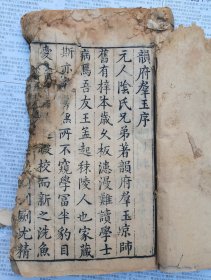 韻府羣玉序
元人陰氏兄弟著韻府羣玉原師
舊有梓本歲久板漶漫難讀學士
病焉吾友王孟起秣陵人也家藏
斯亦無所不窺學冨半豹目
校而新之洗魚